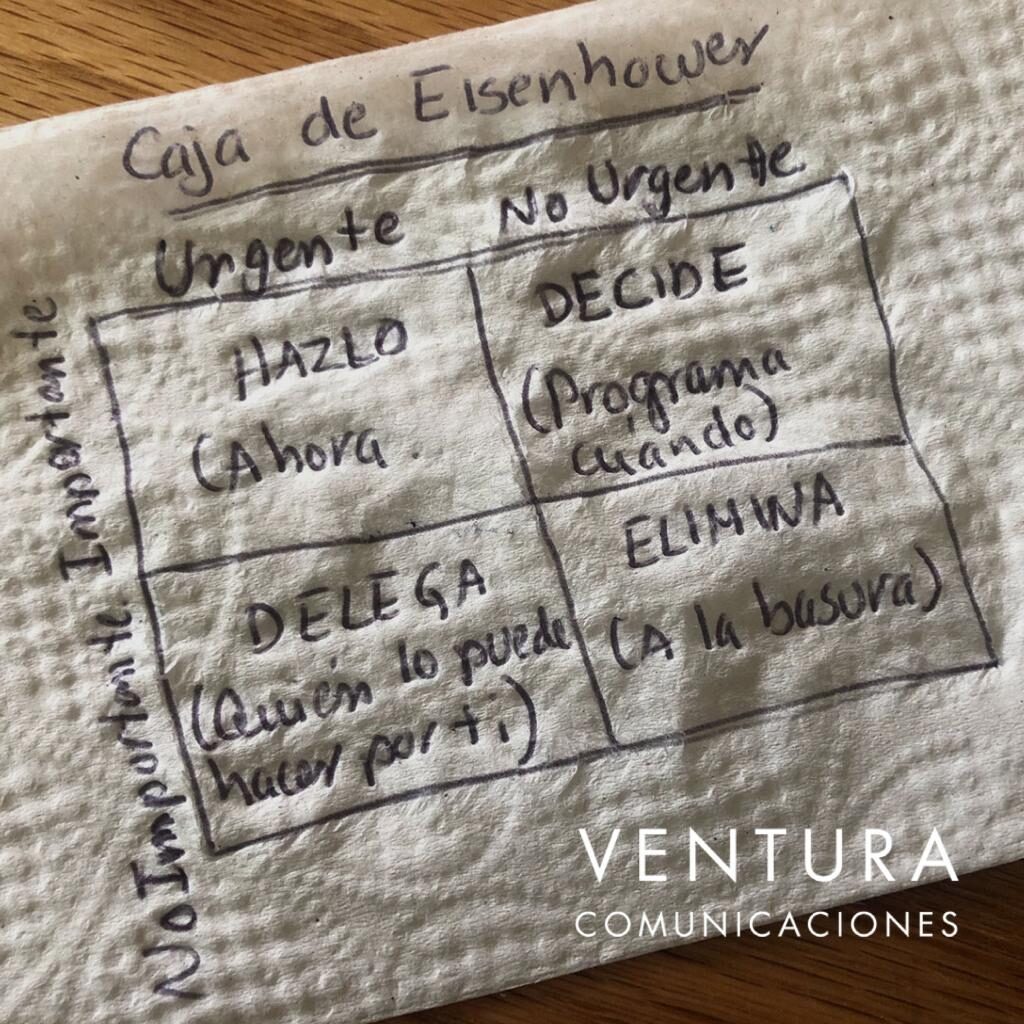 Caja de Eisenhower
Urgente No Urgente
Importante
HAZLO
(Ahora
DECIDE
(Prográma
cuándo)
No Importante
DELEGA
(Quién lo puede
hacer por ti)
ELIMINA
(A la basura)
VENTURA
COMUNICACIONES